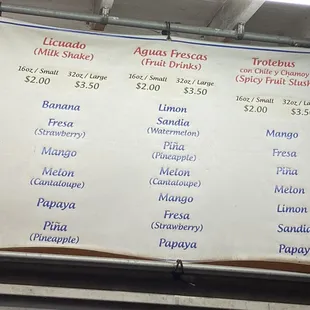 Licuado
(Milk Shake)
16oz / Small
$2.00
32oz / Large
$3.50
Banana
Fresa
(Strawberry)
Mango
Melon
(Cantaloupe)
Papaya
Piña
(Pineapple)
Aguas Frescas
(Fruit Drinks)
16oz / Small
$2.00
32oz / Large
$3.50
Limon
Sandia
(Watermelon)
Piña
(Pineapple)
Melon
(Cantaloupe)
Mango
Fresa
(Strawberry)
Papaya
Trotebus
con Chile y Chamoy
(Spicy Fruit Slush
16oz / Small
$2.00
32oz / Large
$3.50
Mango
Fresa
Piña
Melon
Limon
Sandia
Papaya